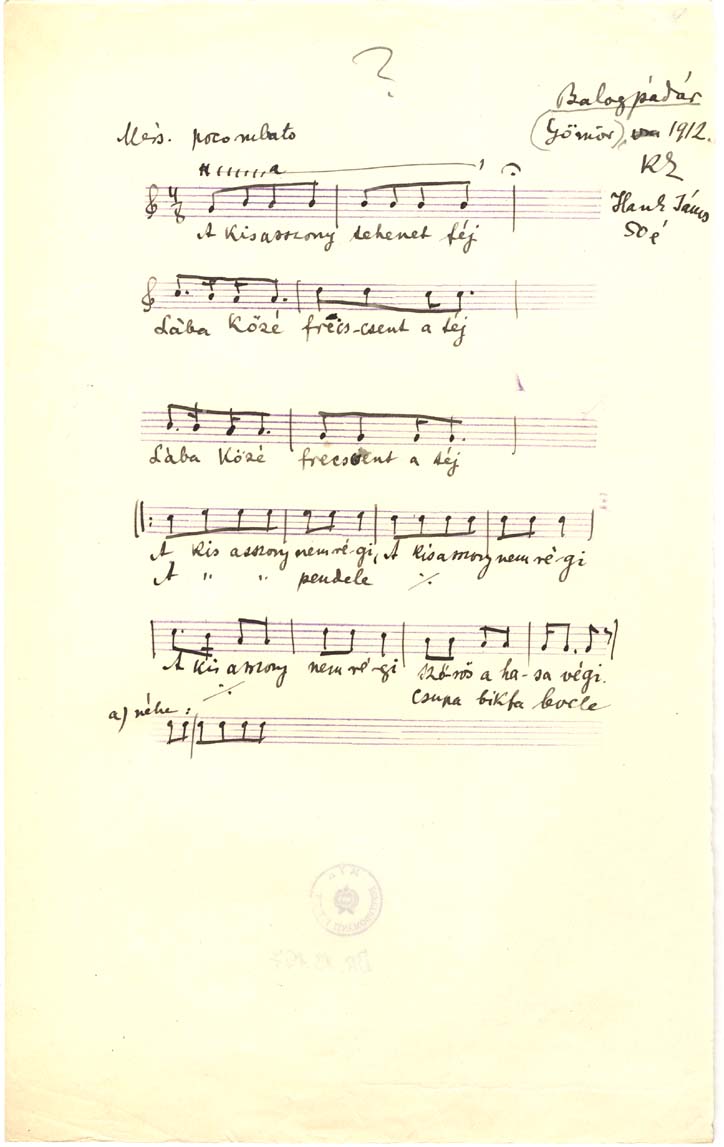 ?
Balogpádár
(Gömör), 1912.
KZ
János
50 é
4/8
A Kisasszony tehenet féj
Lába Közé frecs-csent a téj
Lába Közé frecscsent a téj
A kis asszony nem ré-gi, A kisasszony nem ré-gi
A " " pendele ٪
A kis asszony nem ré-gi Szö-rös a ha-sa végi.
٪ Csupa bikfa
a) néhe: